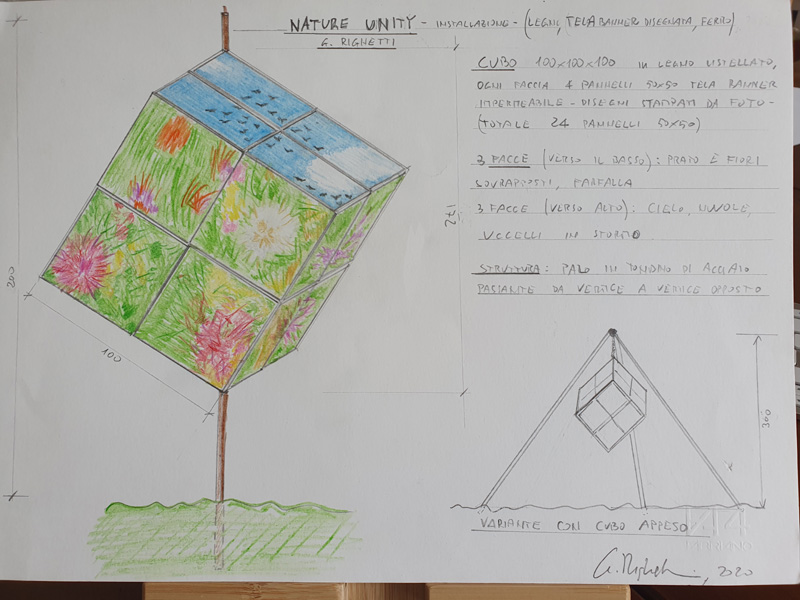 NATURE UNITY - INSTALLAZIONE - (LEGNI, TELA BANNER DISEGNATA, FERRO)
G. RIGHETTI
CUBO 100x100x100 IN LEGNO LISTELLATO,
OGNI FACCIA 4 PANNELLI 50x50 TELA BANNER
IMPERMEABILE - DISEGNI STAMPATI DA FOTO -
(TOTALE 24 PANNELLI 50x50)
3 FACCE (VERSO IL BASSO): PRATO E FIORI
SOVRAPPOSTI, FARFALLA
3 FACCE (VERSO ALTO): CIELO, NUVOLE,
UCCELLI IN STORMO
STRUTTURA: PALO IN TONDINO DI ACCIAIO
PASSANTE DA VERTICE A VERTICE OPPOSTO
200
100
172
300
VARIANTE CON CUBO APPESO
G. Righetti, 2020